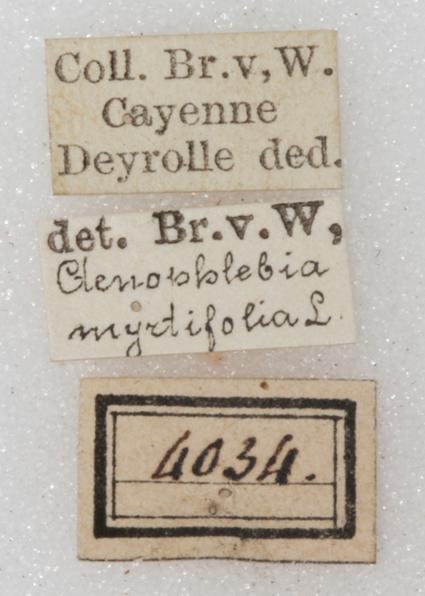 Coll. Br.v,W.
Cayenne
Deyrolle ded.
det. Br.v.W,
Ctenophlebia
myrtifolia L.
4034.